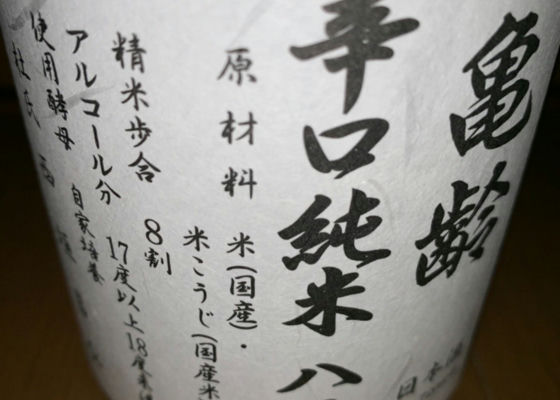 亀齢
日本酒
辛口純米 八
原材料 米(国産)・
米こうじ(国産米
精米歩合 8割
アルコール分 17度以上18度未満
使用酵母 自家培養
杜氏 西